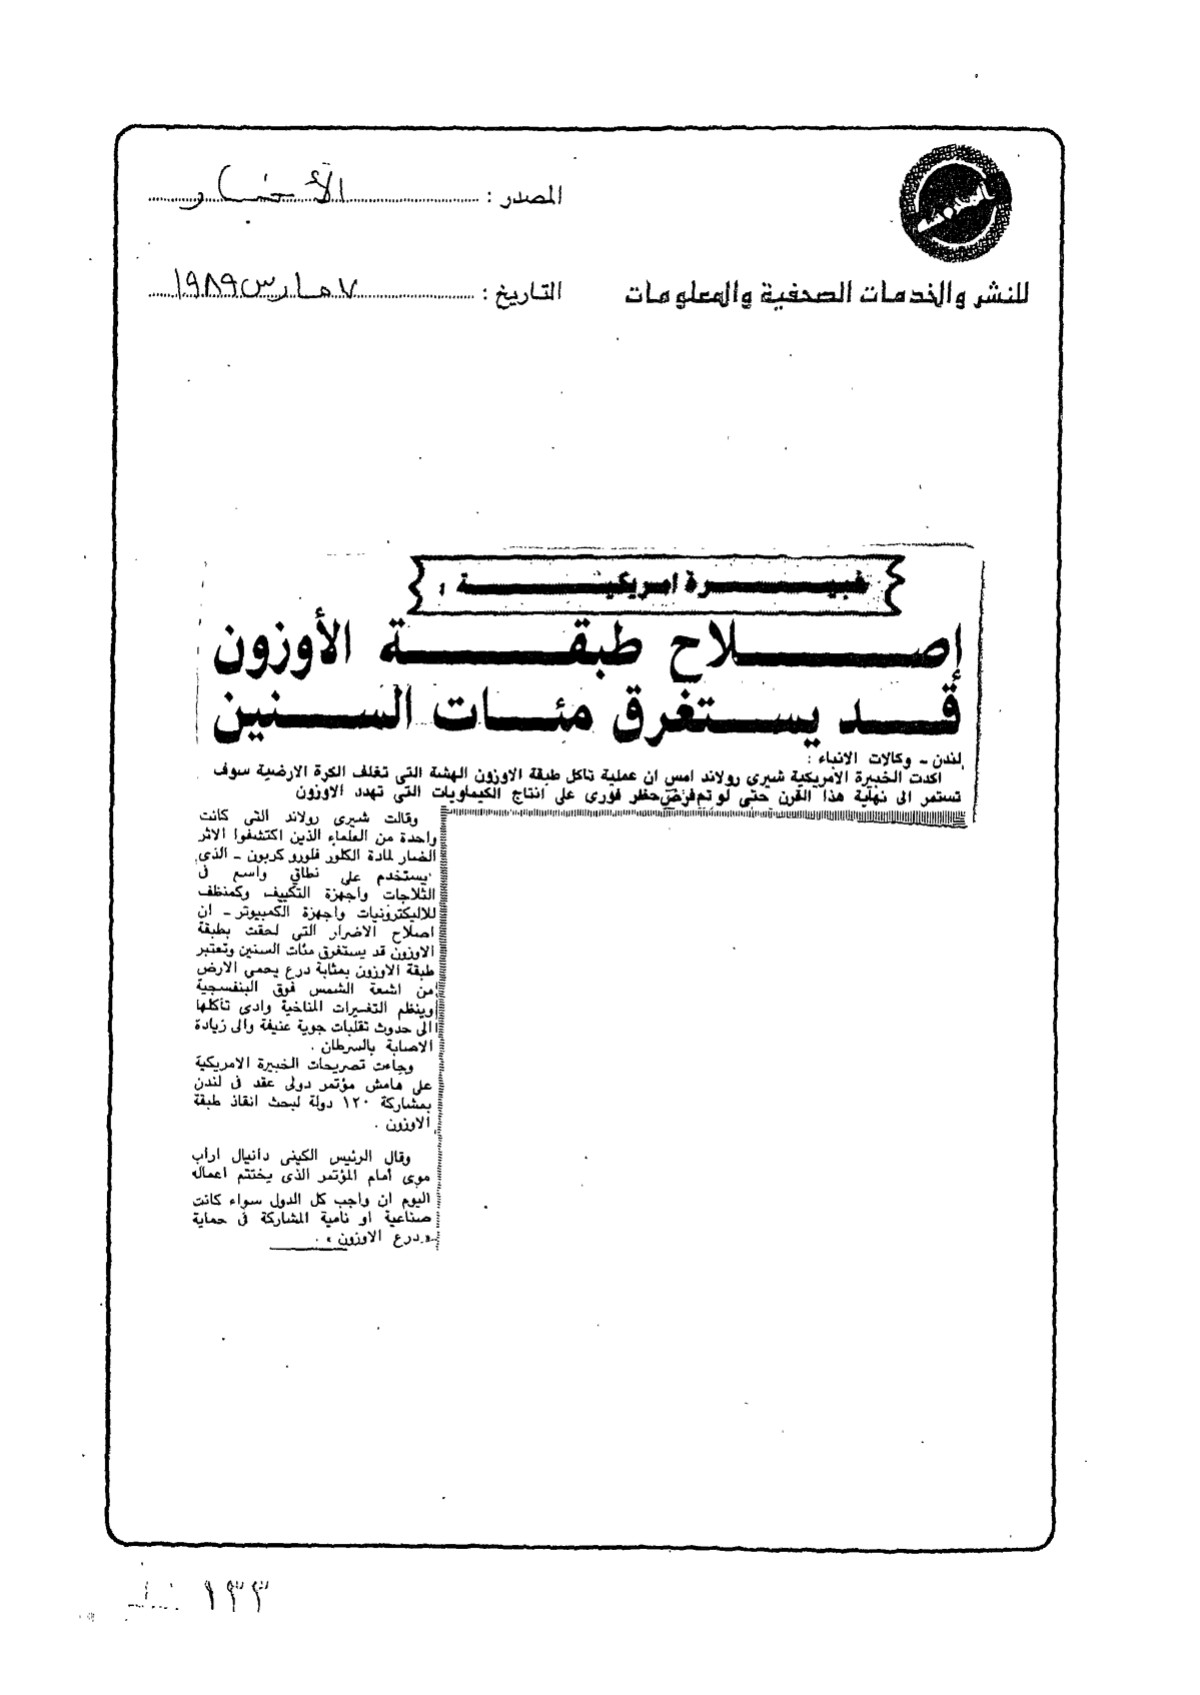 المصدر : الأخبار
للنشر والخدمات الصحفية والمعلومات
التاريخ : ٧ مارس ١٩٨٩
خبيرة امريكية :
إصلاح طبقة الأوزون
قد يستغرق مئات السنين
لندن - وكالات الانباء :
اكدت الخبيرة الامريكية شيرى رولاند امس ان عملية تاكل طبقة الاوزون الهشة التى تغلف الكرة الارضية سوف
تستمر الى نهاية هذا القرن حتى لو تم فرض حظر فورى على انتاج الكيماويات التى تهدد الاوزون
وقالت شيرى رولاند التى كانت
واحدة من العلماء الذين اكتشفوا الاثر
الضار لمادة الكلور فلورو كربون - الذى
يستخدم على نطاق واسع فى
الثلاجات واجهزة التكييف وكمنظف
للاليكترونيات واجهزة الكمبيوتر - ان
اصلاح الاضرار التى لحقت بطبقة
الاوزون قد يستغرق مئات السنين وتعتبر
طبقة الاوزون بمثابة درع يحمى الارض
من اشعة الشمس فوق البنفسجية
وينظم التغيرات المناخية وادى تأكلها
الى حدوث تقلبات جوية عنيفة والى زيادة
الاصابة بالسرطان .
وجاءت تصريحات الخبيرة الامريكية
على هامش مؤتمر دولى عقد فى لندن
بمشاركة ١٢٠ دولة لبحث انقاذ طبقة
الاوزون .
وقال الرئيس الكينى دانيال اراب
موى أمام المؤتمر الذى يختتم اعماله
اليوم ان واجب كل الدول سواء كانت
صناعية او نامية المشاركة فى حماية
« درع الاوزون » .
١٣٣